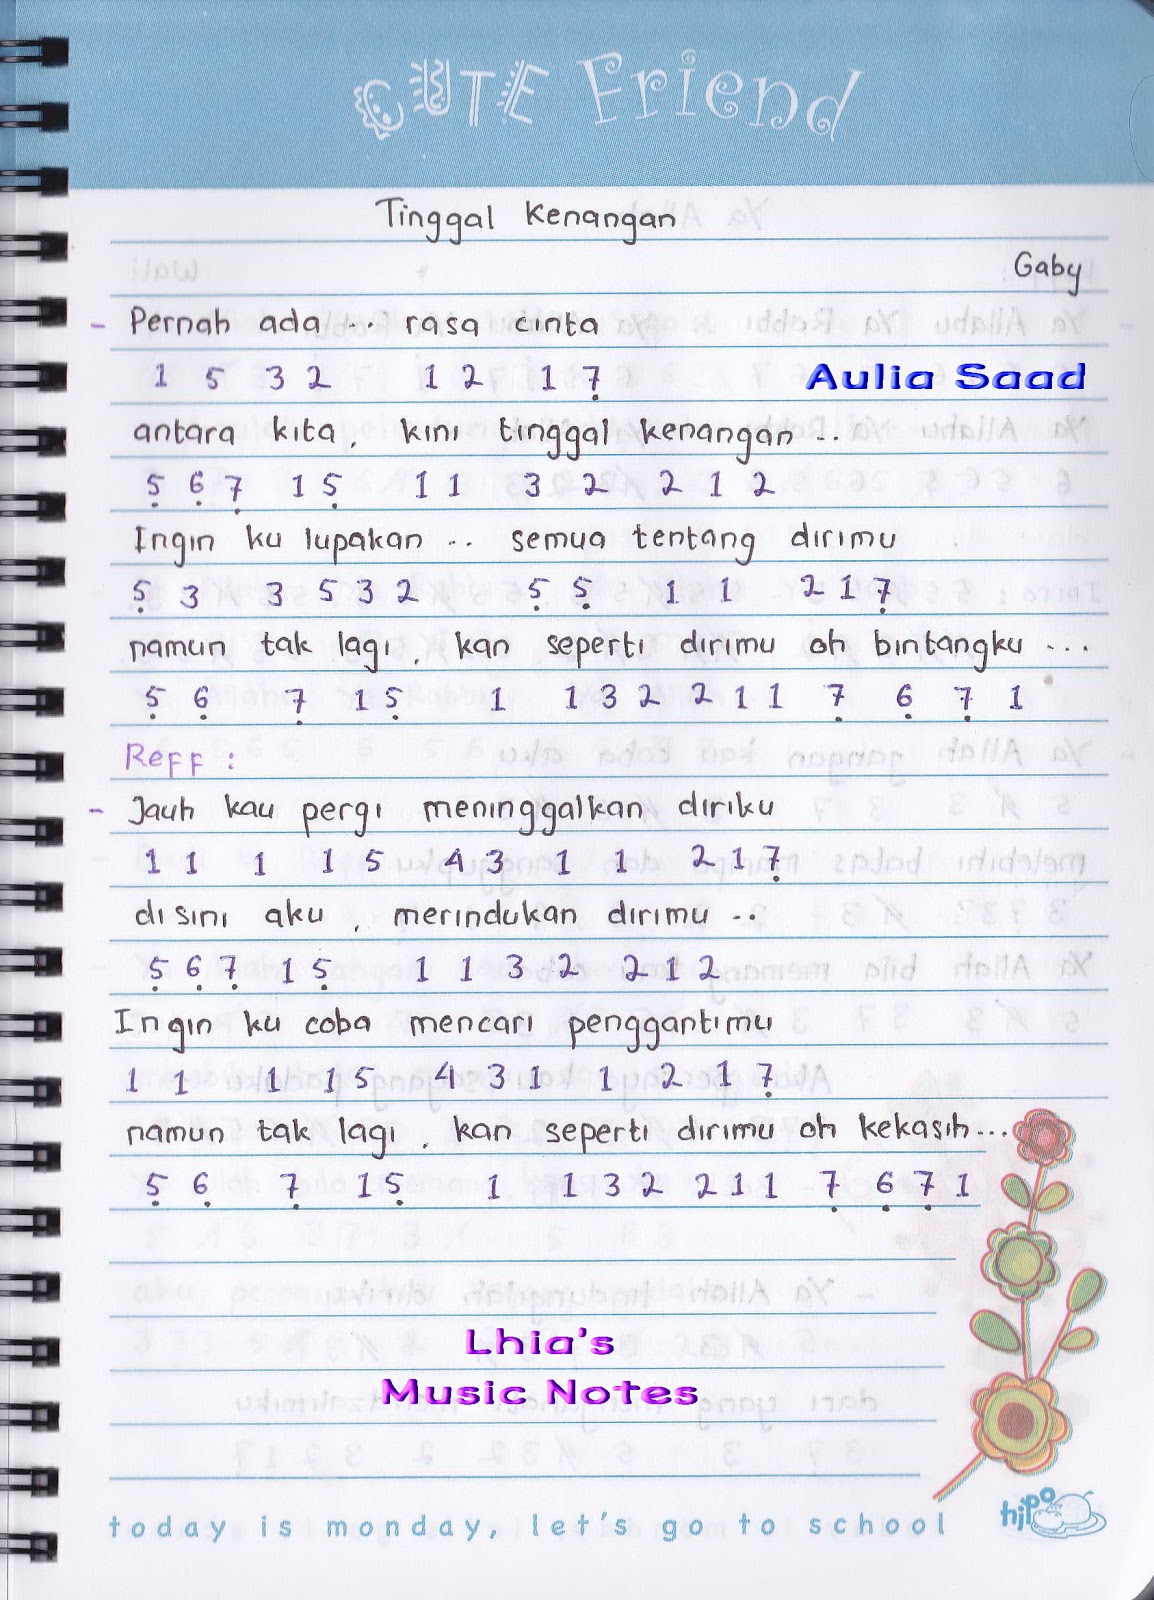 CUTE Friend
Tinggal Kenangan
Gaby
- Pernah ada ... rasa cinta
1 5 3 2 1 2 1 7̣
Aulia Saad
antara kita, kini tinggal kenangan ..
5̣ 6̣ 7̣ 1 5̣ 1 1 3 2 2 1 2
Ingin ku lupakan .. semua tentang dirimu
5̣ 3 3 5 3 2 5̣ 5̣ 1 1 2 1 7̣
namun tak lagi, kan seperti dirimu oh bintangku ...
5̣ 6̣ 7̣ 1 5̣ 1 1 3 2 2 1 1 7̣ 6̣ 7̣ 1
Reff :
- Jauh kau pergi meninggalkan diriku
1 1 1 1 5 4 3 1 1 2 1 7̣
disini aku, merindukan dirimu ..
5̣ 6̣ 7̣ 1 5̣ 1 1 3 2 2 1 2
Ingin ku coba mencari penggantimu
1 1 1 1 5 4 3 1 1 2 1 7̣
namun tak lagi, kan seperti dirimu oh kekasih...
5̣ 6̣ 7̣ 1 5̣ 1 1 3 2 2 1 1 7̣ 6̣ 7̣ 1
Lhia's
Music Notes
today is monday, let's go to school
hipo